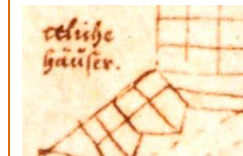 etliche
häüser.